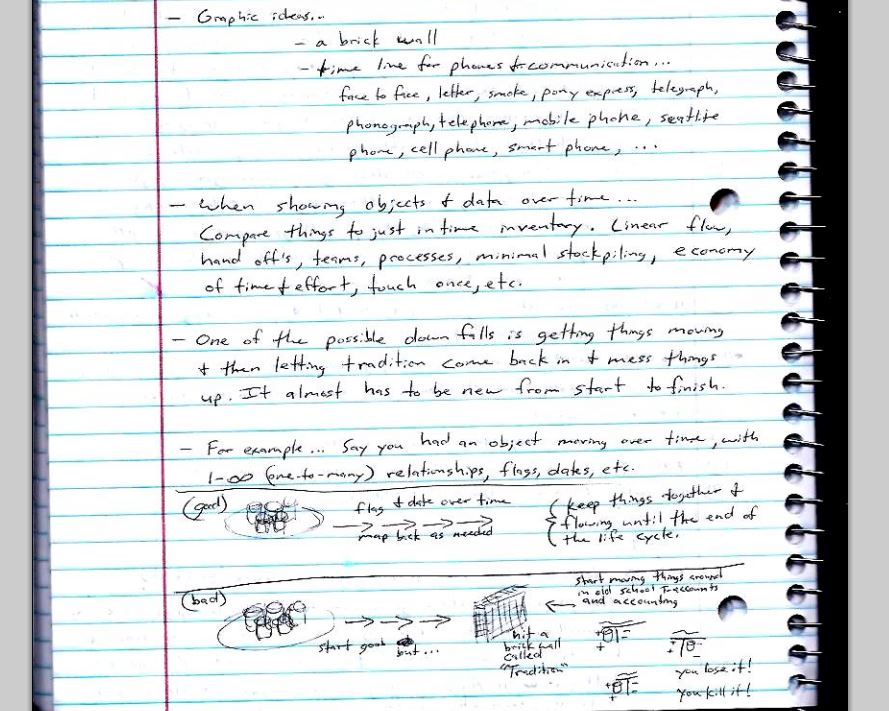 - Graphic ideas...
- a brick wall
- time line for phones & communication...
face to face, letter, smoke, pony express, telegraph,
phonograph, telephone, mobile phone, seatlite
phone, cell phone, smart phone, ...
- When showing objects & data over time...
Compare things to just in time inventory. Linear flow,
hand off's, teams, processes, minimal stockpiling, economy
of time & effort, touch once, etc.
- One of the possible down falls is getting things moving
& then letting tradition come back in & mess things
up. It almost has to be new from start to finish.
- For example... Say you had an object moving over time, with
1-∞ (one-to-many) relationships, flags, dates, etc.
(good)
flag & date over time
map bick as needed
keep things together &
flowing until the end of
the life cycle.
(bad)
start good but...
hit a
brick wall
called
"Tradition"
start moving things around
in old school T-accounts
and accounting
you lose it!
you kill it!